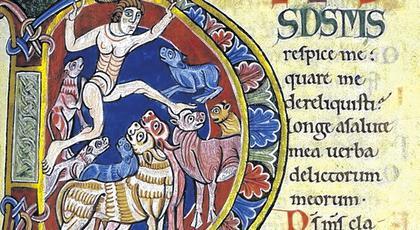 DSDSMS
respice me:
quare me
dereliquisti:
longe asalute
mea uerba
delictorum
meorum.
Ds ms cla-